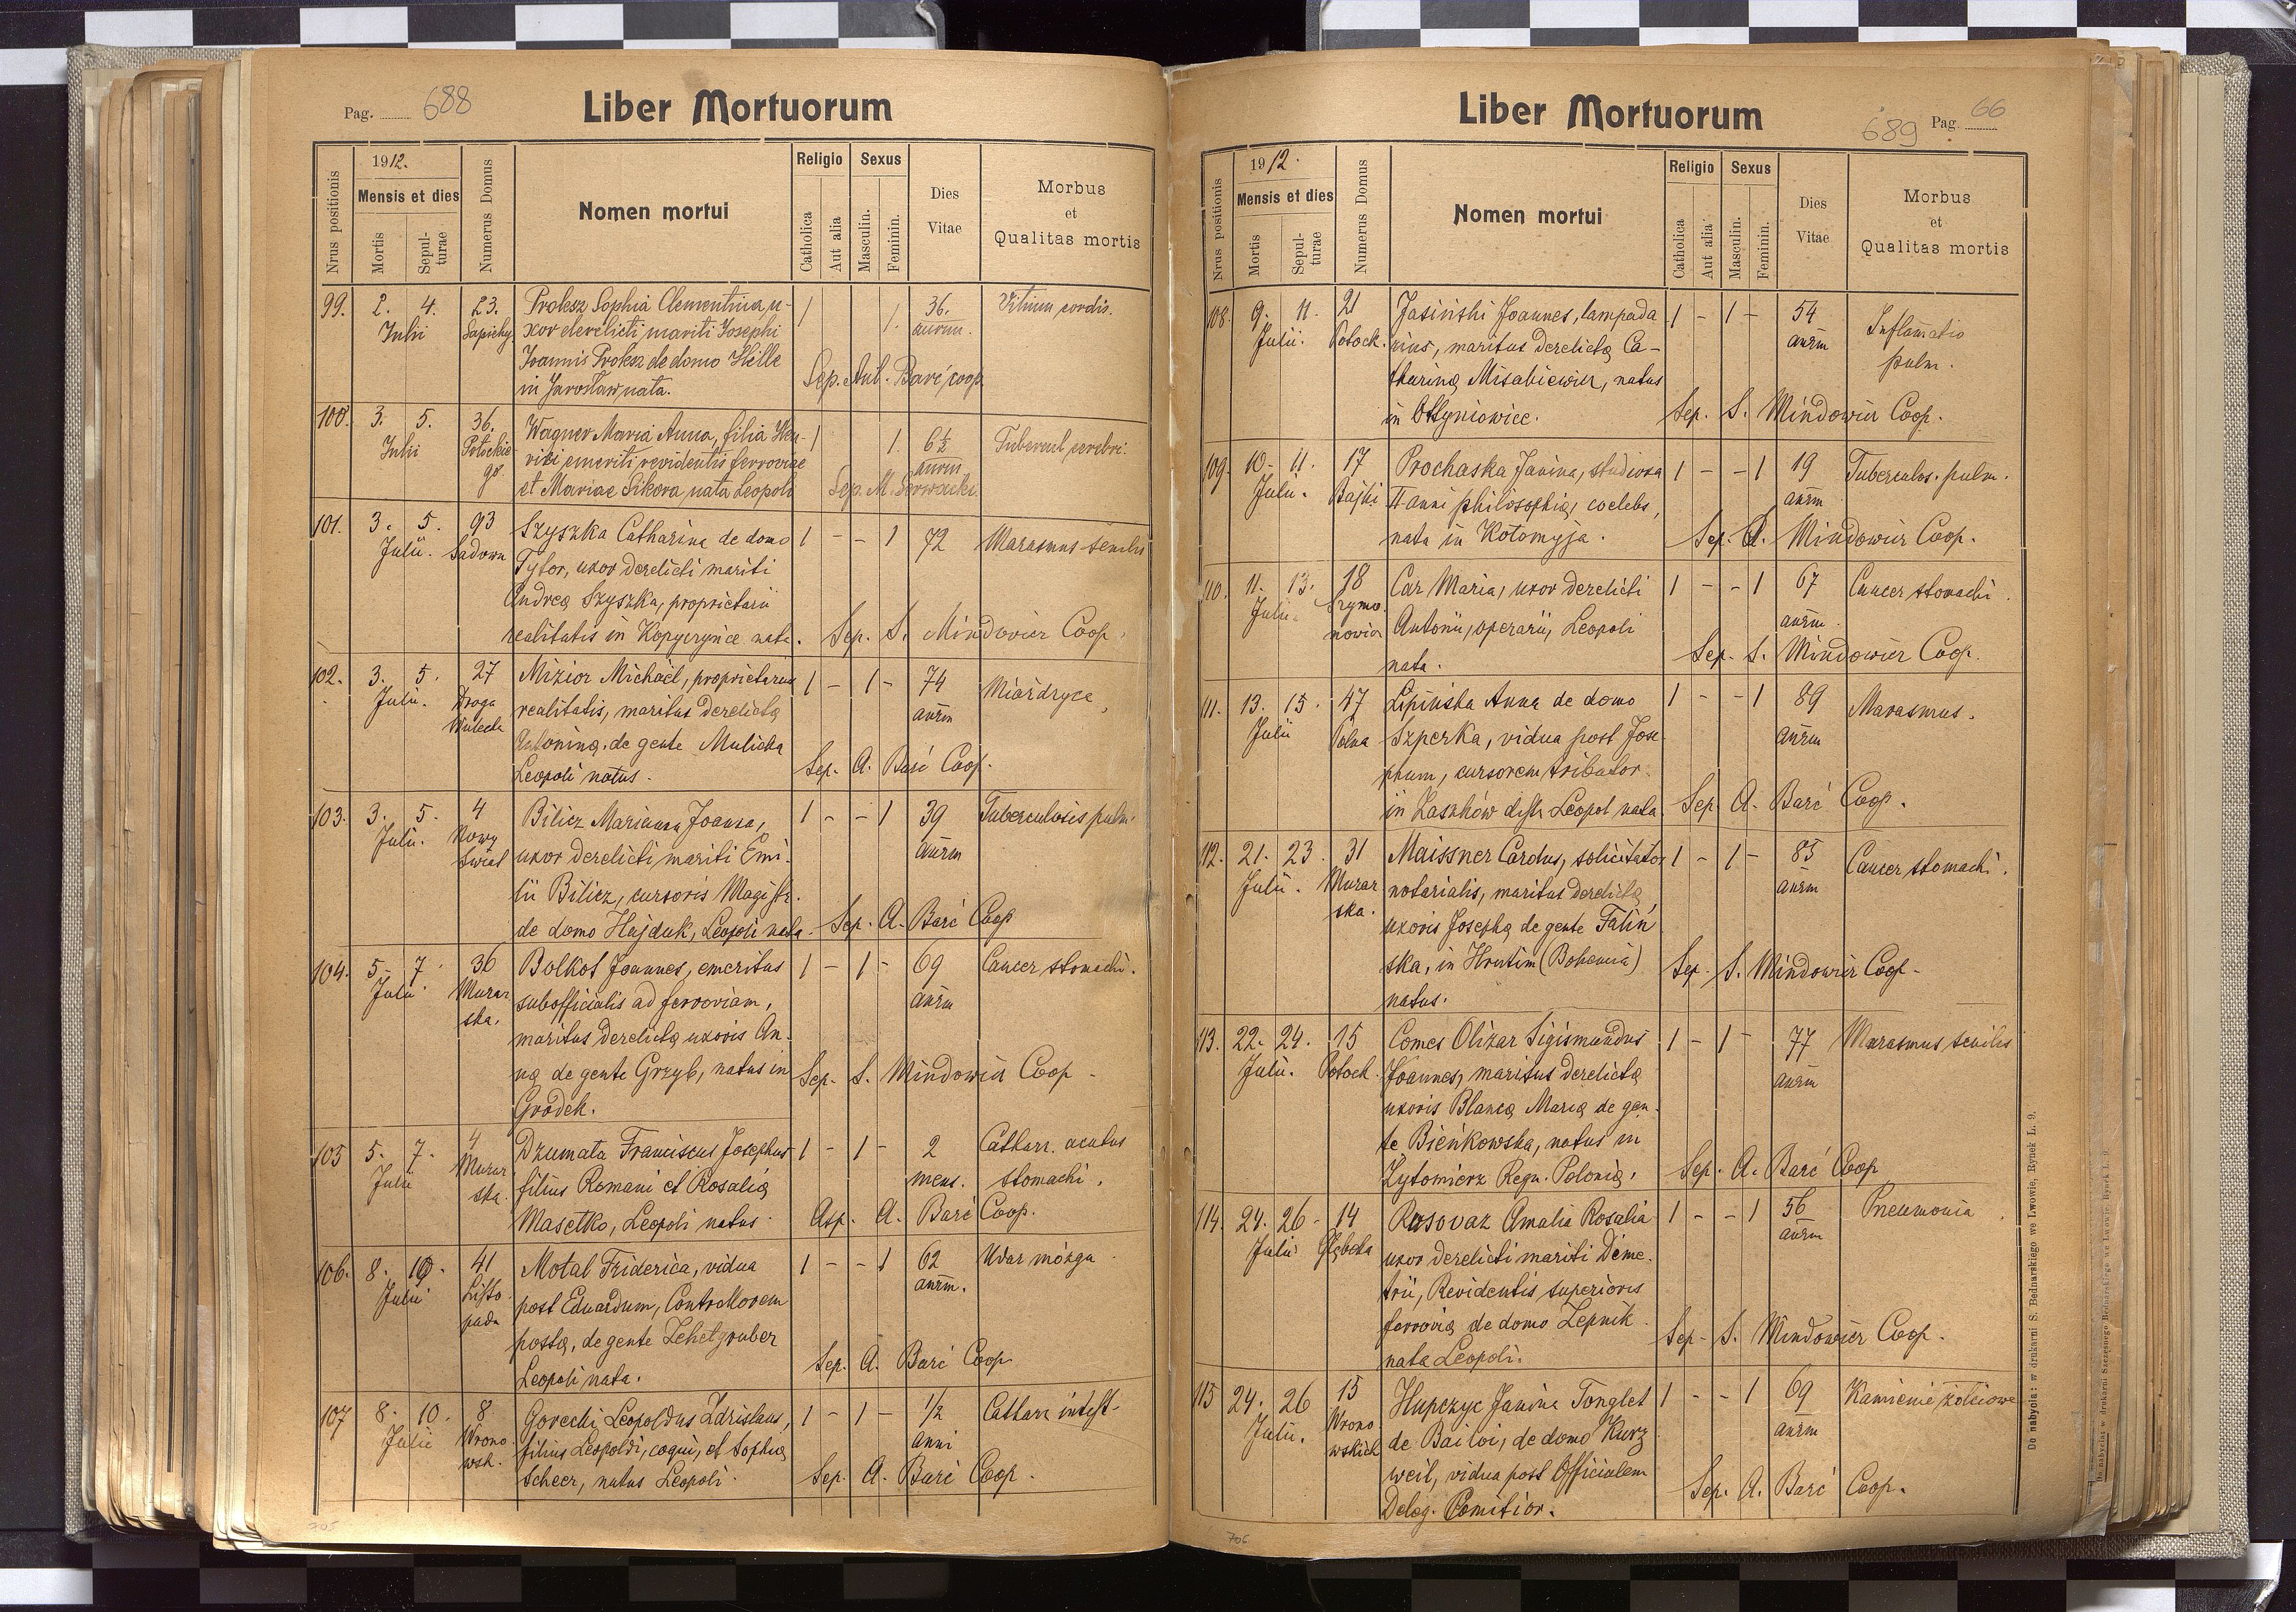 Pag. 688
Liber Mortuorum
Nrus positionis
1912.
Mensis et dies
Mortis
Sepulturae
Numerus Domus
Nomen mortui
Religio
Catholica
Aut alia
Sexus
Masculin.
Feminin.
Dies Vitae
Morbus et Qualitas mortis
99. 2. 4. 23. Prokesz Sophia Clementina, u- 1 1. 36. Vitium cordis.
Julii Sapiehy. xor derelicti mariti Josephi annm.
Joannis Prokesz de domo Hille
in Jarosław nata. Sep. Ant. Barć coop
100. 3. 5. 36. Wagner Maria Anna, filia Hen- 1 1. 6½ Tubercul. cerebri.
Julii Potockie- rici emeriti revidentis ferroviae annm
go. et Mariae Sikora, nata Leopoli Sep. M. Serwacki.
101. 3. 5. 93 Szyszka Catharina de domo 1 - - 1 72 Marasmus senilis
Julii. Sadown Tytor, uxor derelicti mariti
Andreę Szyszka, proprietarii
realitatis in Kopyczyńce nata. Sep. S. Mindowicz Coop.
102. 3. 5. 27 Mizior Michaël, proprietarius 1 - 1 - 74 Miażdżyca
Julii. Droga realitatis, maritus derelictę annm
Wulecka Antoninę de gente Mulicka
Leopoli natus. Sep. A. Barć Coop.
103. 3. 5. 4 Bilicz Marianna Joanna, 1 - - 1 39 Tuberculosis pulm.
Julii. Nowy uxor derelicti mariti Emi- annm
Świat lii Bilicz, cursoris Magistr.
de domo Hajduk, Leopoli nata. Sep. A. Barć Coop
104. 5. 7. 36 Bolkot Joannes, emeritus 1 - 1 - 69 Cancer stomachi.
Julii Murar subofficialis ad ferroviam, annm
ska. maritus derelictę uxoris An-
nę de gente Grzyb, natus in Sep. S. Mindowicz Coop.
Gródek.
105 5. 7. 4 Dzumała Franciscus Josephus 1 - 1 - 2 Catharr. acutus
Julii Murar filius Romani et Rosalię mens. stomachi.
ska. Masetko, Leopoli natus. Asp. A. Barć Coop.
106. 8. 10. 41 Motal Friderica, vidua 1 - - 1 62 Udar mózgu
Julii Listo- post Eduardum, Controllorem annm.
pada postę, de gente Zehetgruber
Leopoli nata. Sep. A. Barć Coop
107 8. 10. 8 Gorecki Leopoldus Zdrislaus, 1 - 1 - 1/2 Catharr intest-
Julii Wrono filius Leopoldi, coqui, et Sophię anni
wsk. Scheer, natus Leopoli. Sep. A. Barć Coop.
705
Liber Mortuorum
689 Pag. 66
Nrus positionis
1912.
Mensis et dies
Mortis
Sepulturae
Numerus Domus
Nomen mortui
Religio
Catholica
Aut alia
Sexus
Masculin.
Feminin.
Dies Vitae
Morbus et Qualitas mortis
108. 9. 11. 21 Jasiński Joannes, lampada 1 - 1 - 54 Inflamatio
Julii. Potock. rius, maritus derelictę Ca- annm pulm.
tharinę Misakiewicz, natus
in Ottyniowice. Sep. S. Mindowicz Coop.
109. 10. 11. 17 Prochaska Janina, studiosa 1 - - 1 19 Tuberculos. pulm.
Julii. Bajki II anni philosophię, coelebs, annm
nata in Kołomyja. Sep. S. Mindowicz Coop.
110. 11. 13. 18 Car Maria, uxor derelicti 1 - - 1 67 Cancer stomachi.
Julii. Szymo- Antonii, operarii, Leopoli annm.
nowicz nata. Sep. S. Mindowicz Coop.
111. 13. 15. 47 Lipińska Anna de domo 1 - - 1 89 Marasmus.
Julii Polna Szperka, vidua post Jose- annm
phum, cursorem tributor.
in Laszków distr. Leopol nata Sep. A. Barć Coop.
112. 21. 23. 31 Maissner Carolus, solicitator 1 - 1 - 85 Cancer stomachi.
Julii. Murar notarialis, maritus derelictę annm
ska. uxoris Josephę de gente Faliń
ska, in Hrutim (Bohemia) Sep. S. Mindowicz Coop.
natus.
113. 22. 24. 15 Comes Olizar Sigismundus 1 - 1 - 77 Marasmus senilis
Julii. Potock. Joannes, maritus derelictę annm
uxoris Blancę Marię de gen-
te Bieńkowska, natus in
Żytomierz Regn. Polonię. Sep. A. Barć Coop
114. 24. 26. 14 Rosovaz Amalia Rosalia 1 - - 1 56 Pneumonia
Julii Głęboka uxor derelicti mariti Deme- annm
trii, Revidentis superioris
ferrovię de domo Lepnik Sep. S. Mindowicz Coop.
nata Leopoli.
115 24. 26 15 Hupczyc Janina Tonglet 1 - - 1 69 Kamienie żółciowe
Julii. Wrono de Bailoi, de domo Kurz annm
wskich weil, vidua post Officialem
Deleg. Comitior. Sep. A. Barć Coop.
706
Do nabycia: w drukarni S. Bednarskiego we Lwowie, Rynek L. 9.
Do nabycia: w drukarni Szczęsnego Bednarskiego we Lwowie Rynek L. 9.